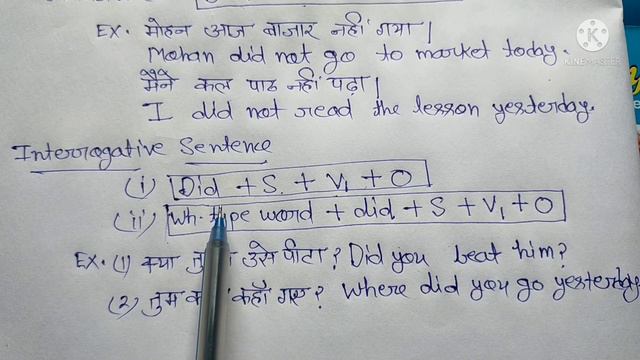 Ex. मोहन आज बाजार नहीं गया |
Mohan did not go to market today.
मैंने कल पाठ नहीं पढ़ा |
I did not read the lesson yesterday.
Interrogative Sentence
(i) Did + S. + V₁ + O
(ii) Wh. type word + did + S + V₁ + O
Ex. (1) क्या उसे पीटा ? Did you beat him?
(2) तुम कहाँ गए ? Where did you go yesterday
KINEMASTER